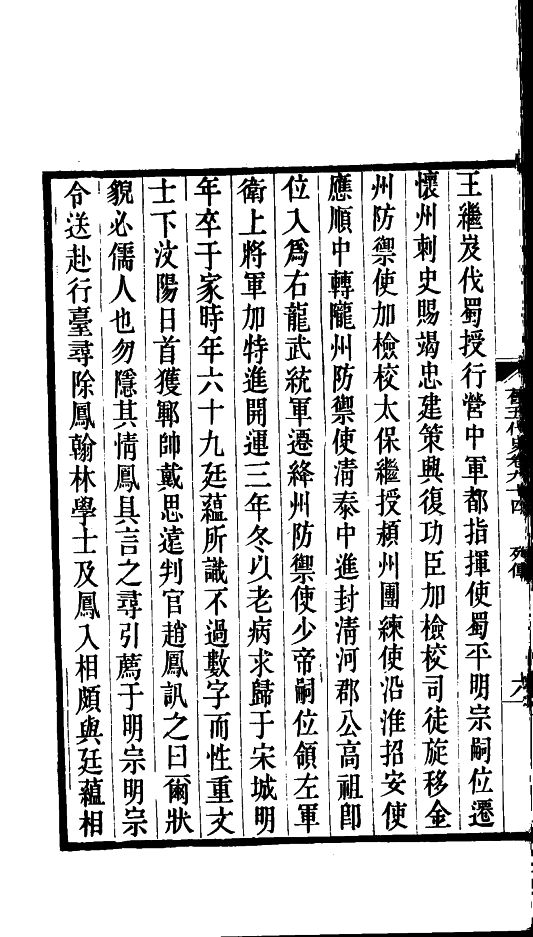 王繼岌伐蜀授行營中軍都指揮使蜀平明宗嗣位遷
懷州刺史賜竭忠建策興復功臣加檢校司徒旋移金
州防禦使加檢校太保繼授潁州團練使沿淮招安使
應順中轉隴州防禦使淸泰中進封淸河郡公高祖卽
位入爲右龍武統軍遷絳州防禦使少帝嗣位領左軍
衛上將軍加特進開運三年冬以老病求歸于宋城明
年卒于家時年六十九廷蘊所識不過數字而性重文
士下汶陽日首獲鄆帥戴思遠判官趙鳳訊之曰爾狀
貌必儒人也勿隱其情鳳具言之尋引薦于明宗明宗
令送赴行臺尋除鳳翰林學士及鳳入相頗與廷蘊相
舊五代史卷九十四 列傳 六